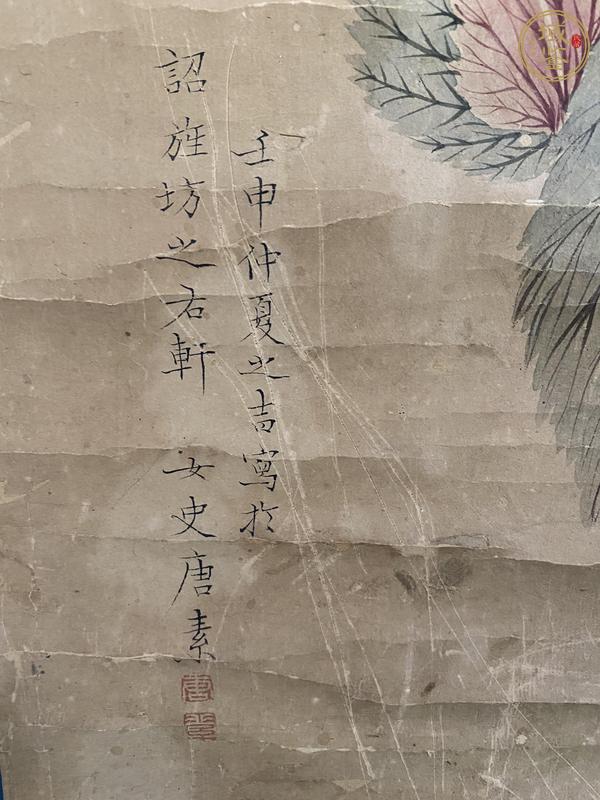 壬申仲夏之吉寫於
詔旌坊之右軒 女史唐素